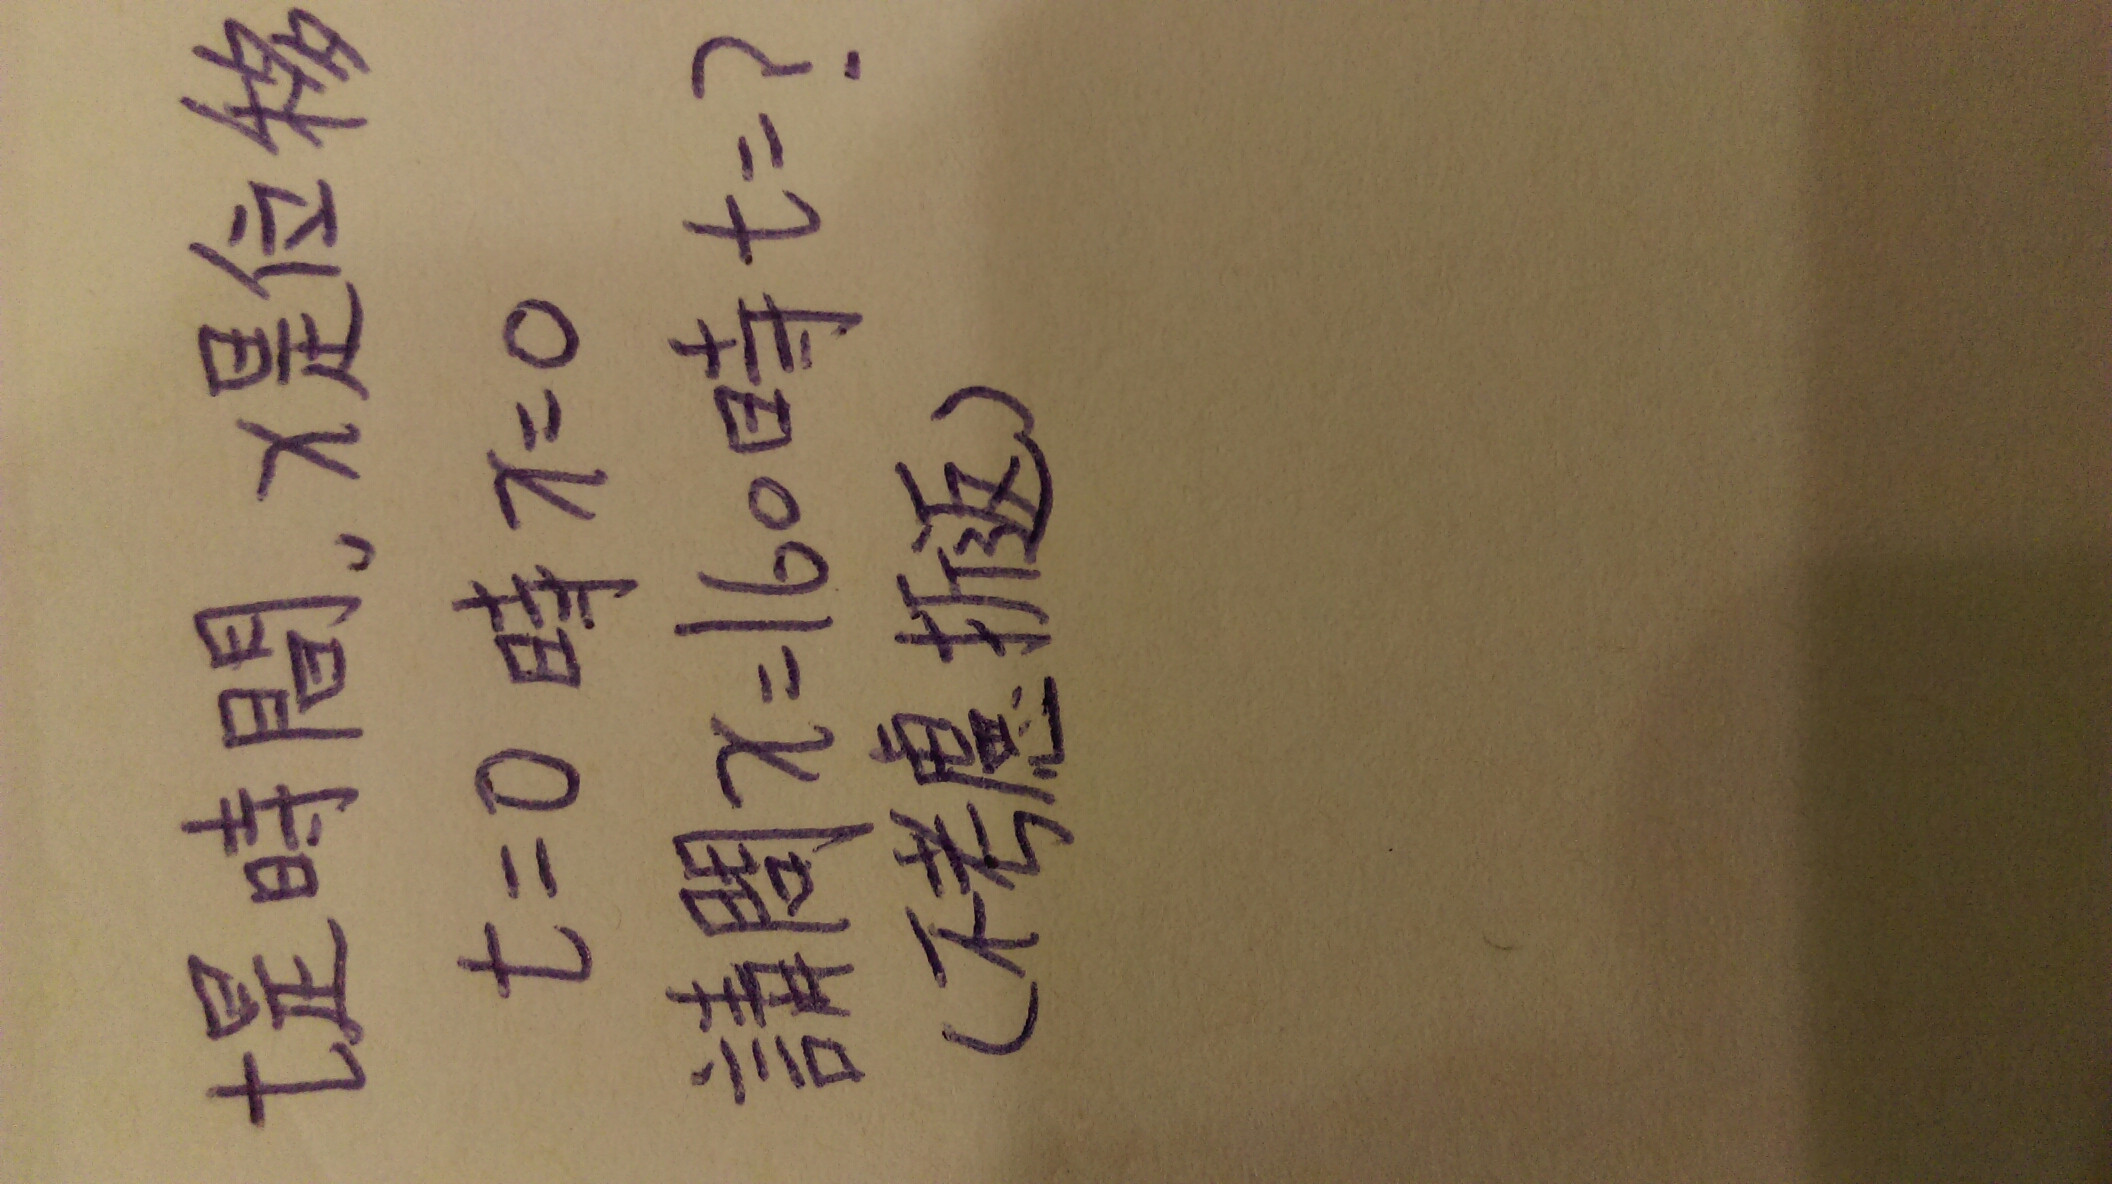 t是時間, x是位移
t=0 時 x=0
請問x=160時t=?
(不考慮折返)